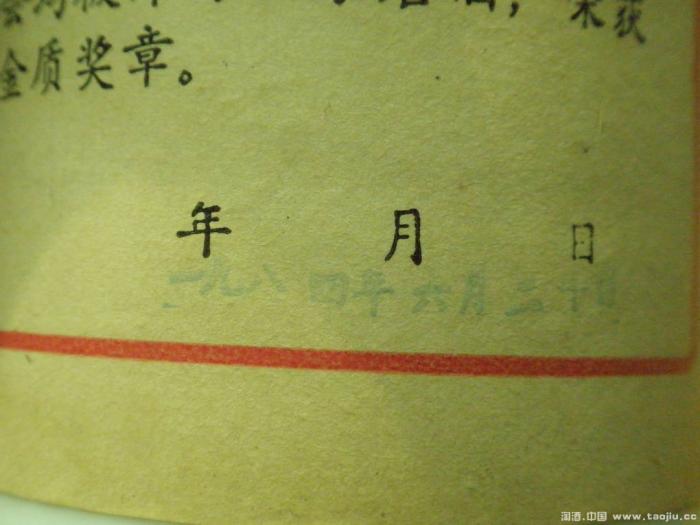 荣获
金质奖章。
年 月 日
一九八四年六月三十日
淘酒.中国 www.taojiu.cc